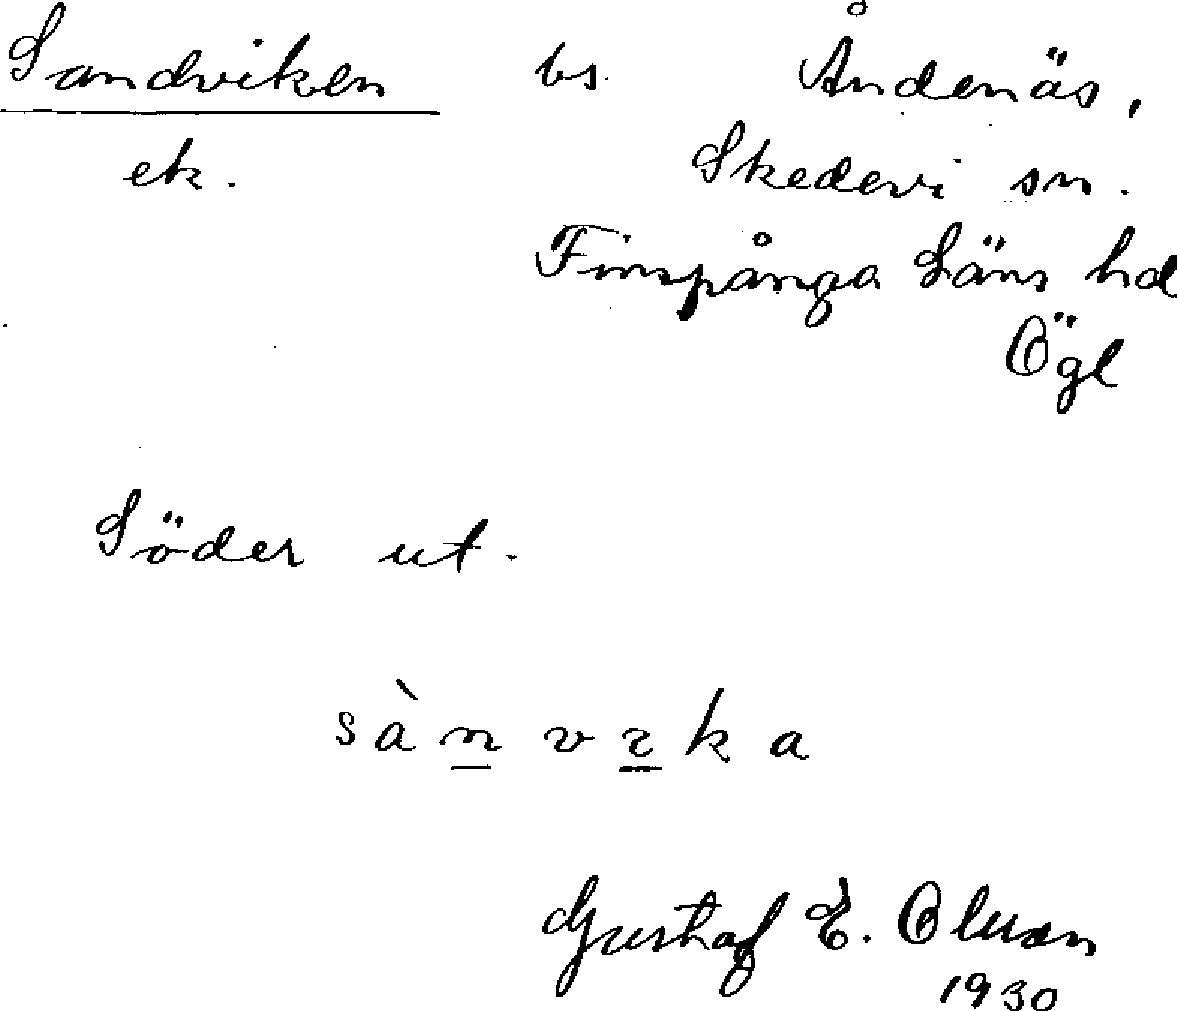 Sandviken bs. Åndenäs,
ek. Skedevi sn.
Finspånga Läns hd
Ögl
Söder ut.
sànvıka
Gustaf E. Olsson
1930